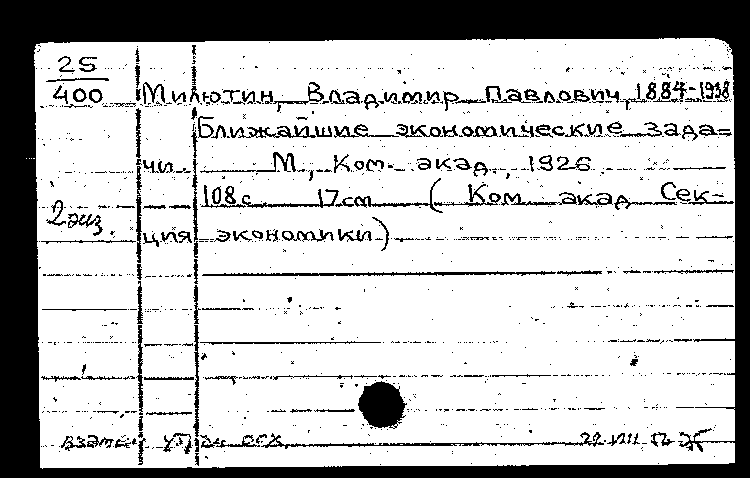 25
400 Милютин, Владимир Павлович, 1884-1938
Ближайшие экономические зада=
чи. М., Ком. акад., 1926.
108с 17см ( Ком акад Сек-
2 экз.
ция экономики).